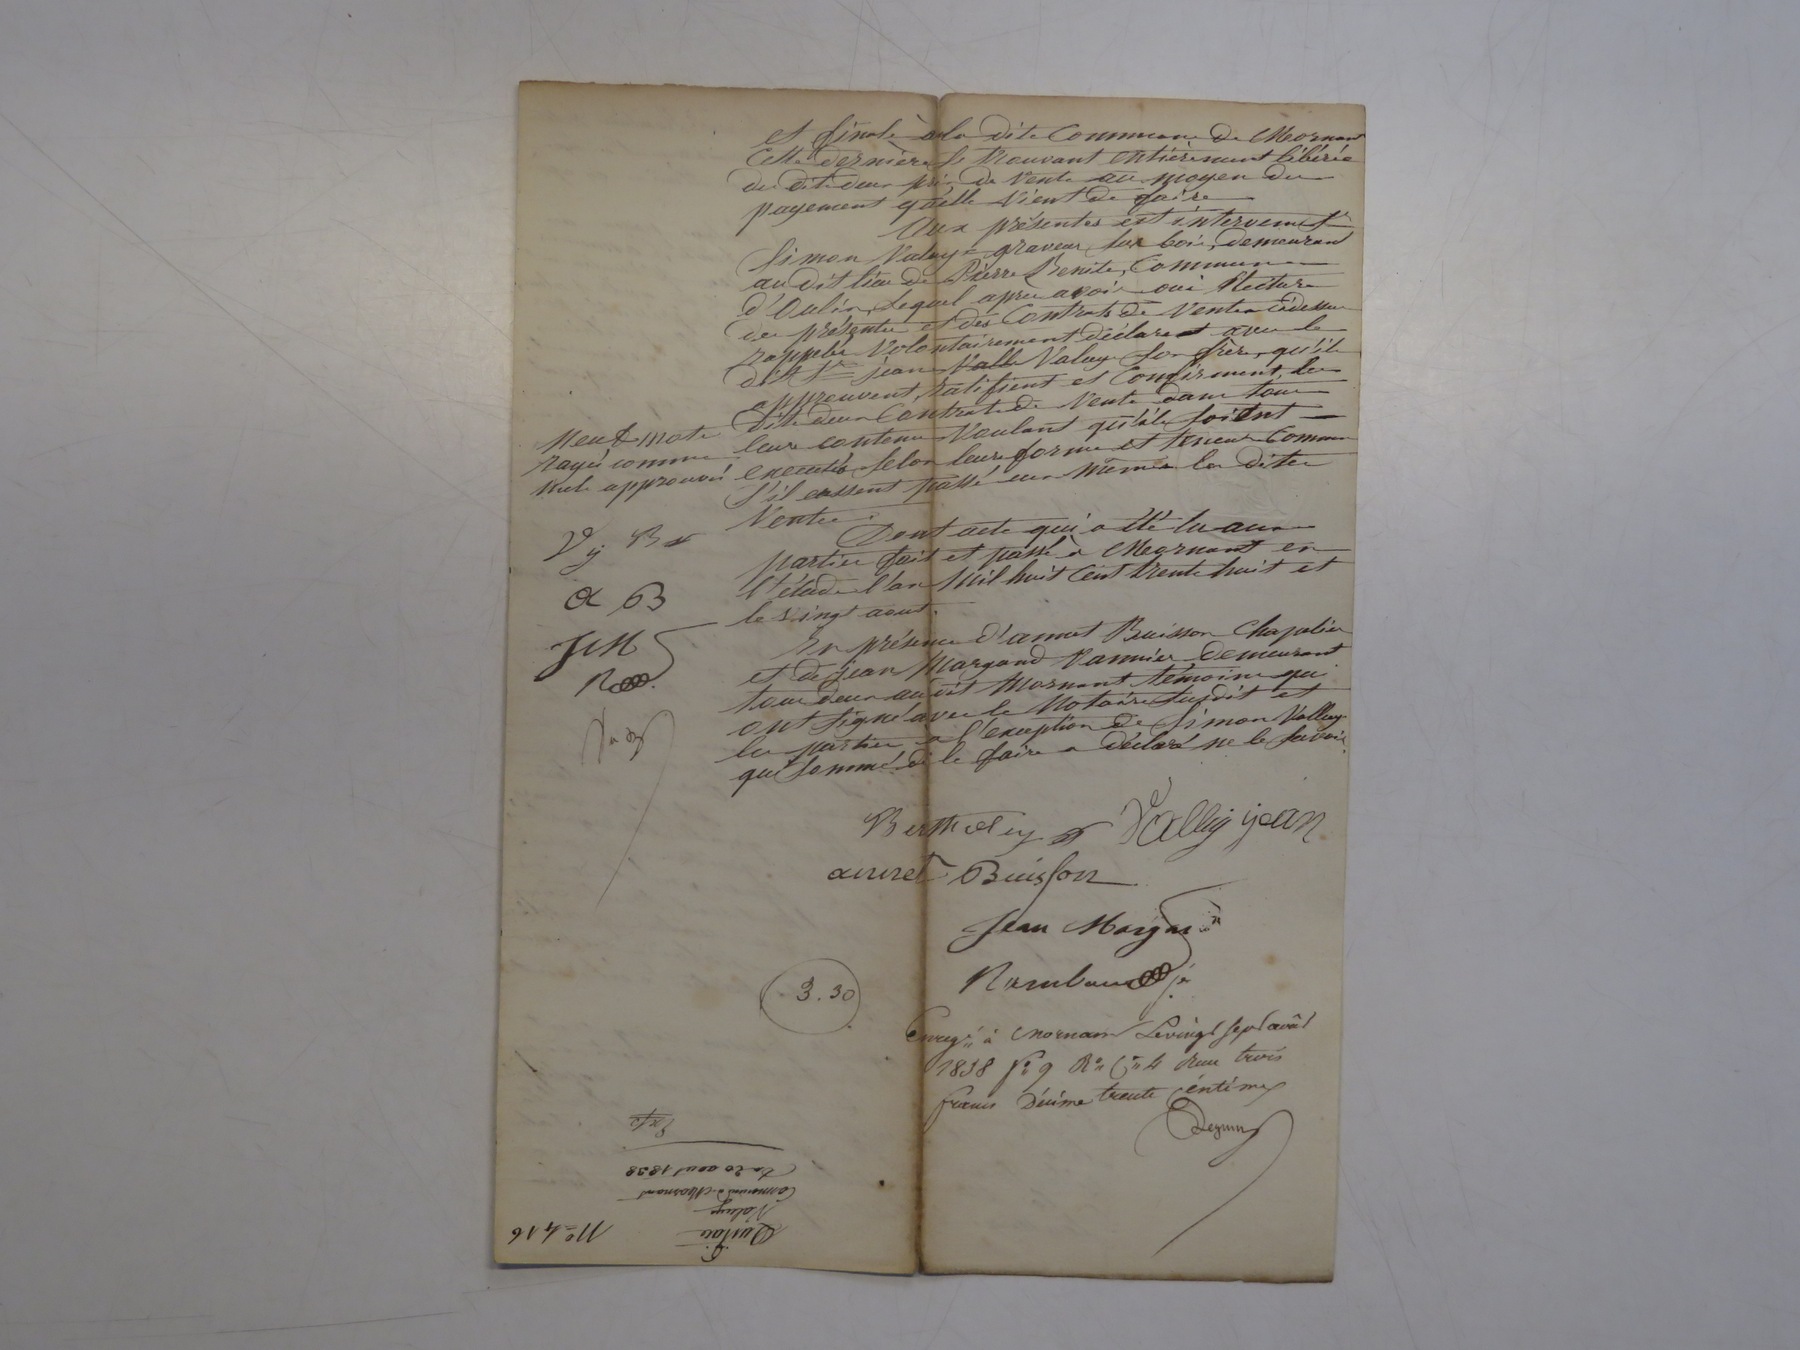 et finale à la dite Commune de Mornant
Cette dernière se trouvant entièrement libérée
des dits deux prix de Vente au moyen du
payement qu'elle Vient de faire
Aux présentes est intervenu Sr
Simon Valuy graveur sur bois, demeurant
au dit lieu de Pierre Benite, Commune
d'Oulin, Lequel après avoir oui Lecture
des présentes et des Contrats de Ventes cidessus
rappelés Volontairement déclarent avec le
dit Sr jean Valle Valuy son frère, qu'ils
approuvent, ratifient et Confirment, les
dits deux Contrats de Vente dans tout
leur contenu Voulant qu'ils soient
executés selon leur forme et teneur Comme
s'il eussent passé eux mêmes les dites
Ventes.
Dont acte qui a été lu aux
parties fait et passé à Mornant en
l'étude l'an Mil huit Cent trente huit et
le vingt aout.
En présence d'annet Buisson Chapelier
et de jean Margand Vannier demeurant
tous deux au dit Mornant témoins qui
ont signé avec le Notaire susdit et
les parties à l'exception de Simon Valluy
qui sommé de le faire a déclaré ne le savoir.
Neuf mots
rayés comme
nuls approuvés
V j B
a B
J M
R
Bertholey Valluy jean
annet Buisson
Jean Margan
Rambau je
3.30
Enregé à Mornant Le vingt sept août
1838 fo 9 Ro Ce 4 Reçu trois
francs Décime trente Centimes
No 416
Quittance
Valuy
Commune de Mornant
Du 20 aout 1838